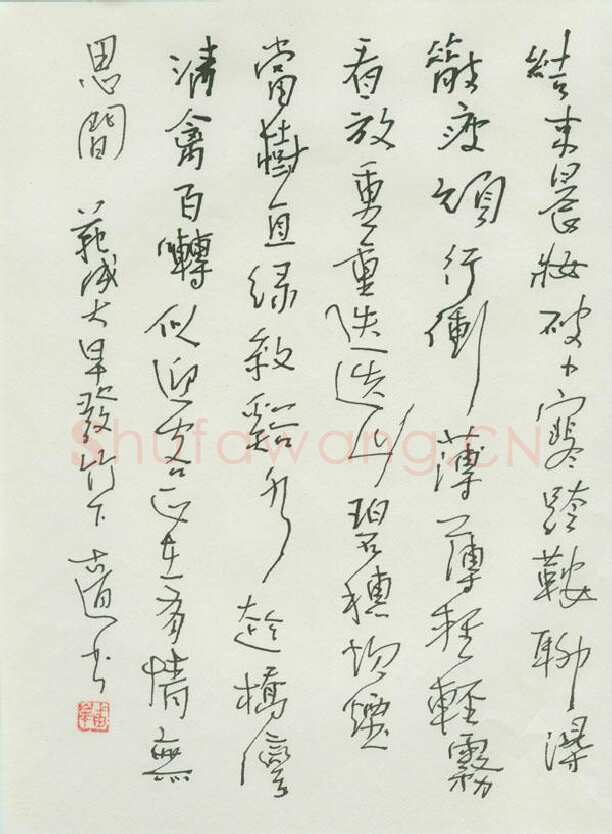 結束晨妝破小寒跨鞍聊得
散疲頑行衝薄薄輕輕霧
看放重重迭迭山碧穗吹煙
當樹直綠紋谿水趁橋彎
清禽百囀似迎客正在有情無
思間 範成大早發竹下 古道书
Shufawang.CN